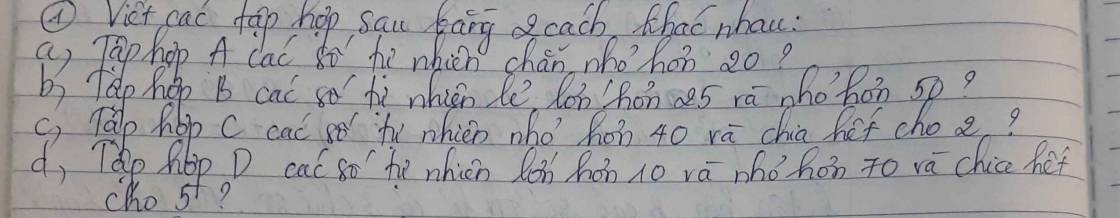 ① Viết các tập hợp sau bằng 2 cách khác nhau:
a, Tập hợp A các số tự nhiên chẵn nhỏ hơn 20?
b, Tập hợp B các số tự nhiên lẻ lớn hơn 25 và nhỏ hơn 50?
c, Tập hợp C các số tự nhiên nhỏ hơn 40 và chia hết cho 2?
d, Tập hợp D các số tự nhiên lớn hơn 10 và nhỏ hơn 70 và chia hết
cho 5?